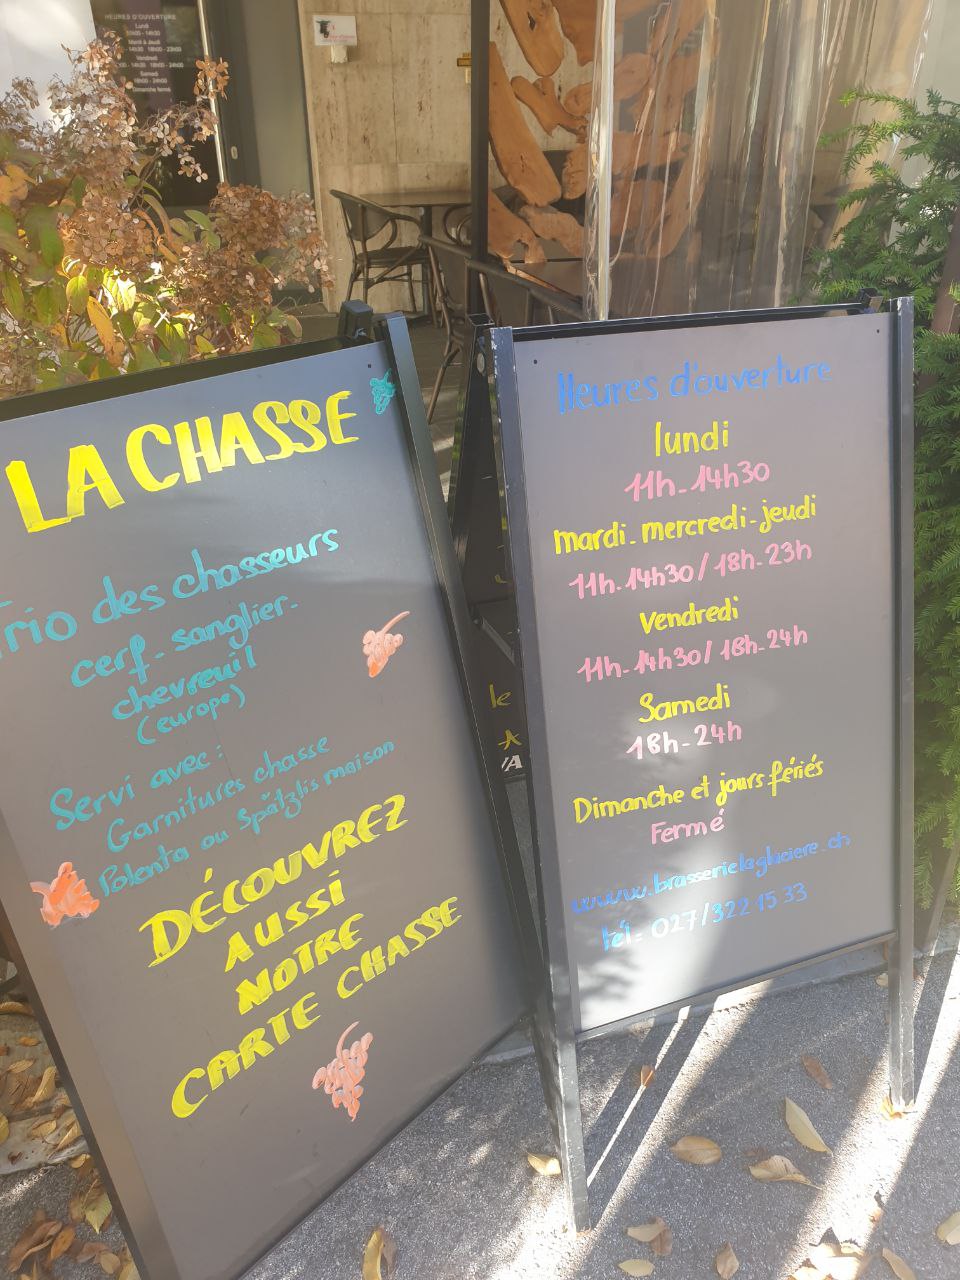 HEURES D'OUVERTURE
Lundi
Mardi à Jeudi
Vendredi
Samedi
Dimanche fermé
LA CHASSE
Trio des chasseurs
cerf - sanglier -
chevreuil
(europe)
Servi avec :
Garnitures chasse
Polenta ou Spätzlis maison
DÉCOUVREZ
AUSSI
NOTRE
CARTE CHASSE
Heures d'ouverture
lundi
11h - 14h30
mardi - mercredi - jeudi
11h - 14h30 / 18h - 23h
Vendredi
11h - 14h30 / 18h - 24h
Samedi
18h - 24h
Dimanche et jours fériés
Fermé
www.brasserielaglaciere.ch
tél = 027/322 15 33
le